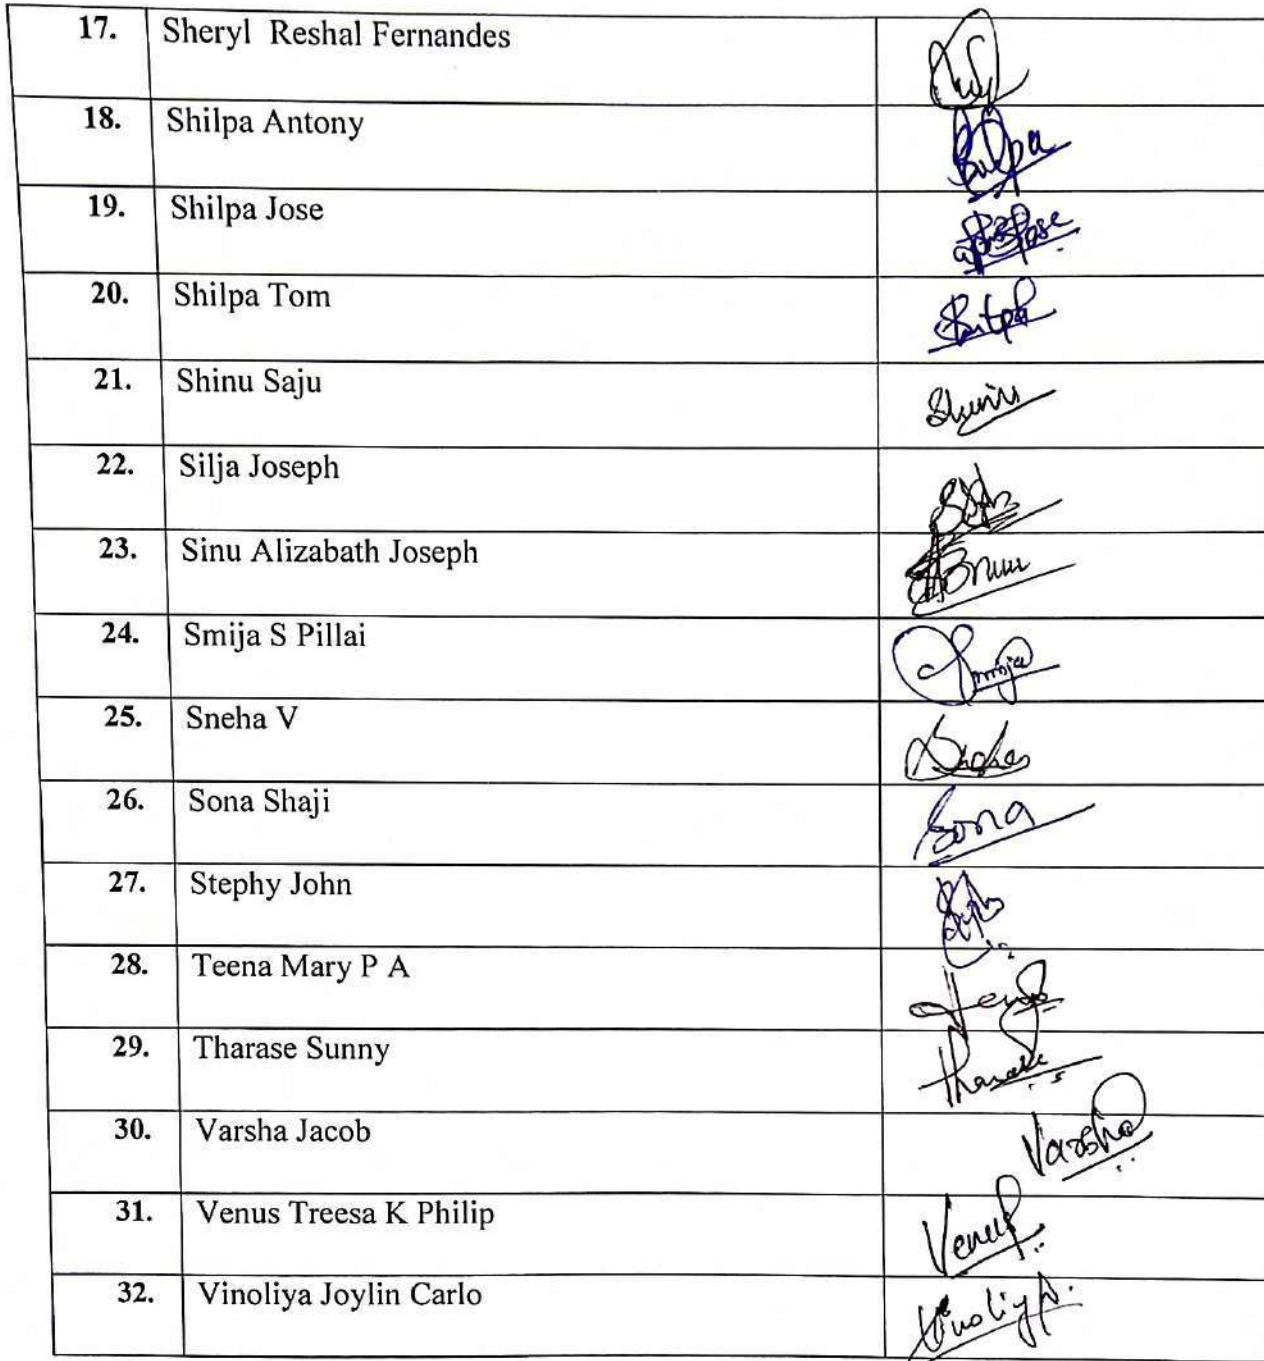 17. Sheryl Reshal Fernandes
18. Shilpa Antony Shilpa
19. Shilpa Jose
20. Shilpa Tom Shilpa
21. Shinu Saju Shinu
22. Silja Joseph
23. Sinu Alizabath Joseph
24. Smija S Pillai Smija
25. Sneha V Sneha
26. Sona Shaji Sona
27. Stephy John
28. Teena Mary P A Teena
29. Tharase Sunny Tharase
30. Varsha Jacob Varsha
31. Venus Treesa K Philip Venus
32. Vinoliya Joylin Carlo Vinoliya